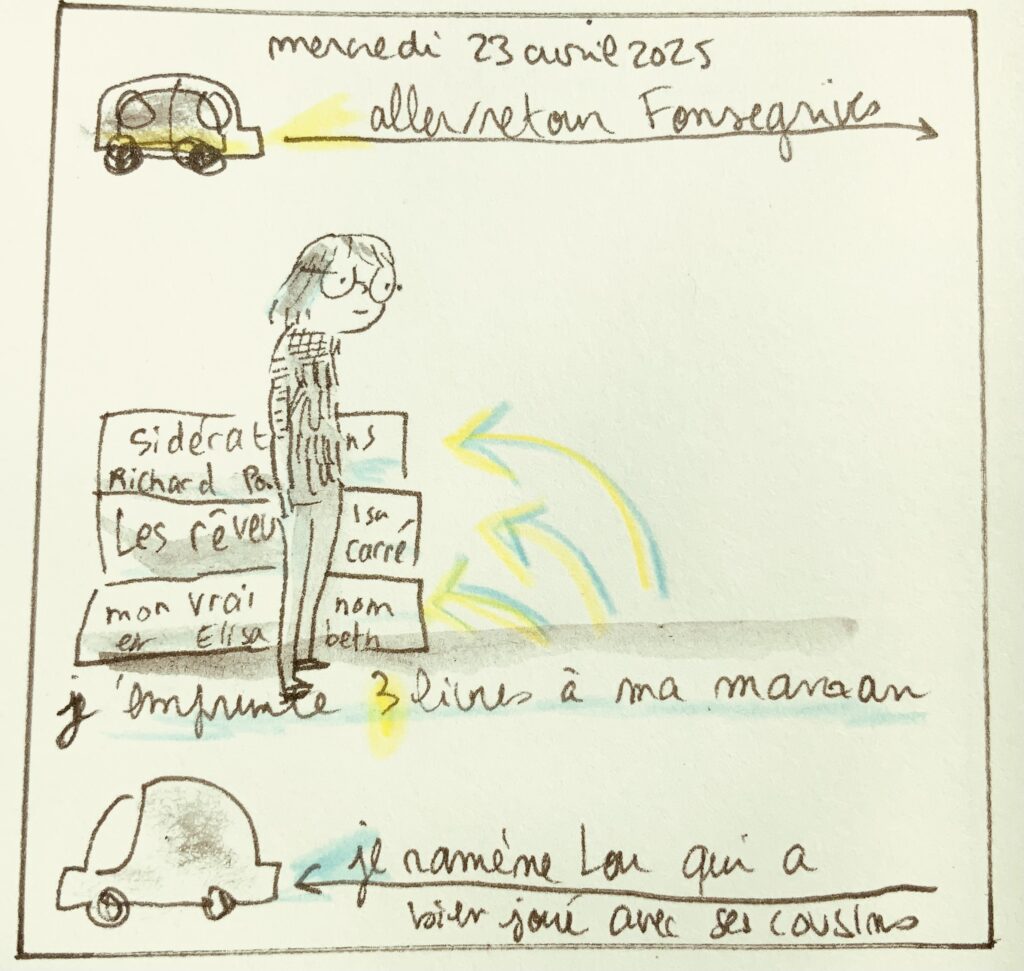 mercredi 23 avril 2025
aller/retour Fonsegrives
Sidérat ns
Richard Po
Les rêveu Isa
carré
mon vrai nom
est Elisa beth
j'emprunte 3 livres à ma maman
je ramène Lou qui a
bien joué avec ses cousins